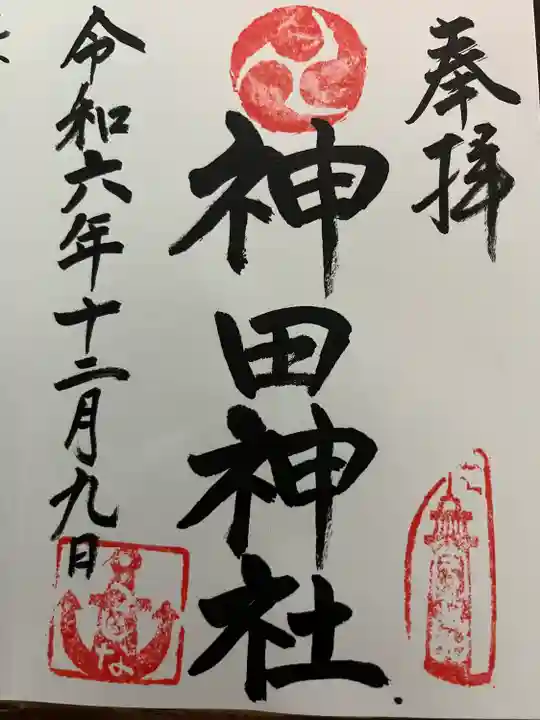 奉拝
神田神社
令和六年十二月九日